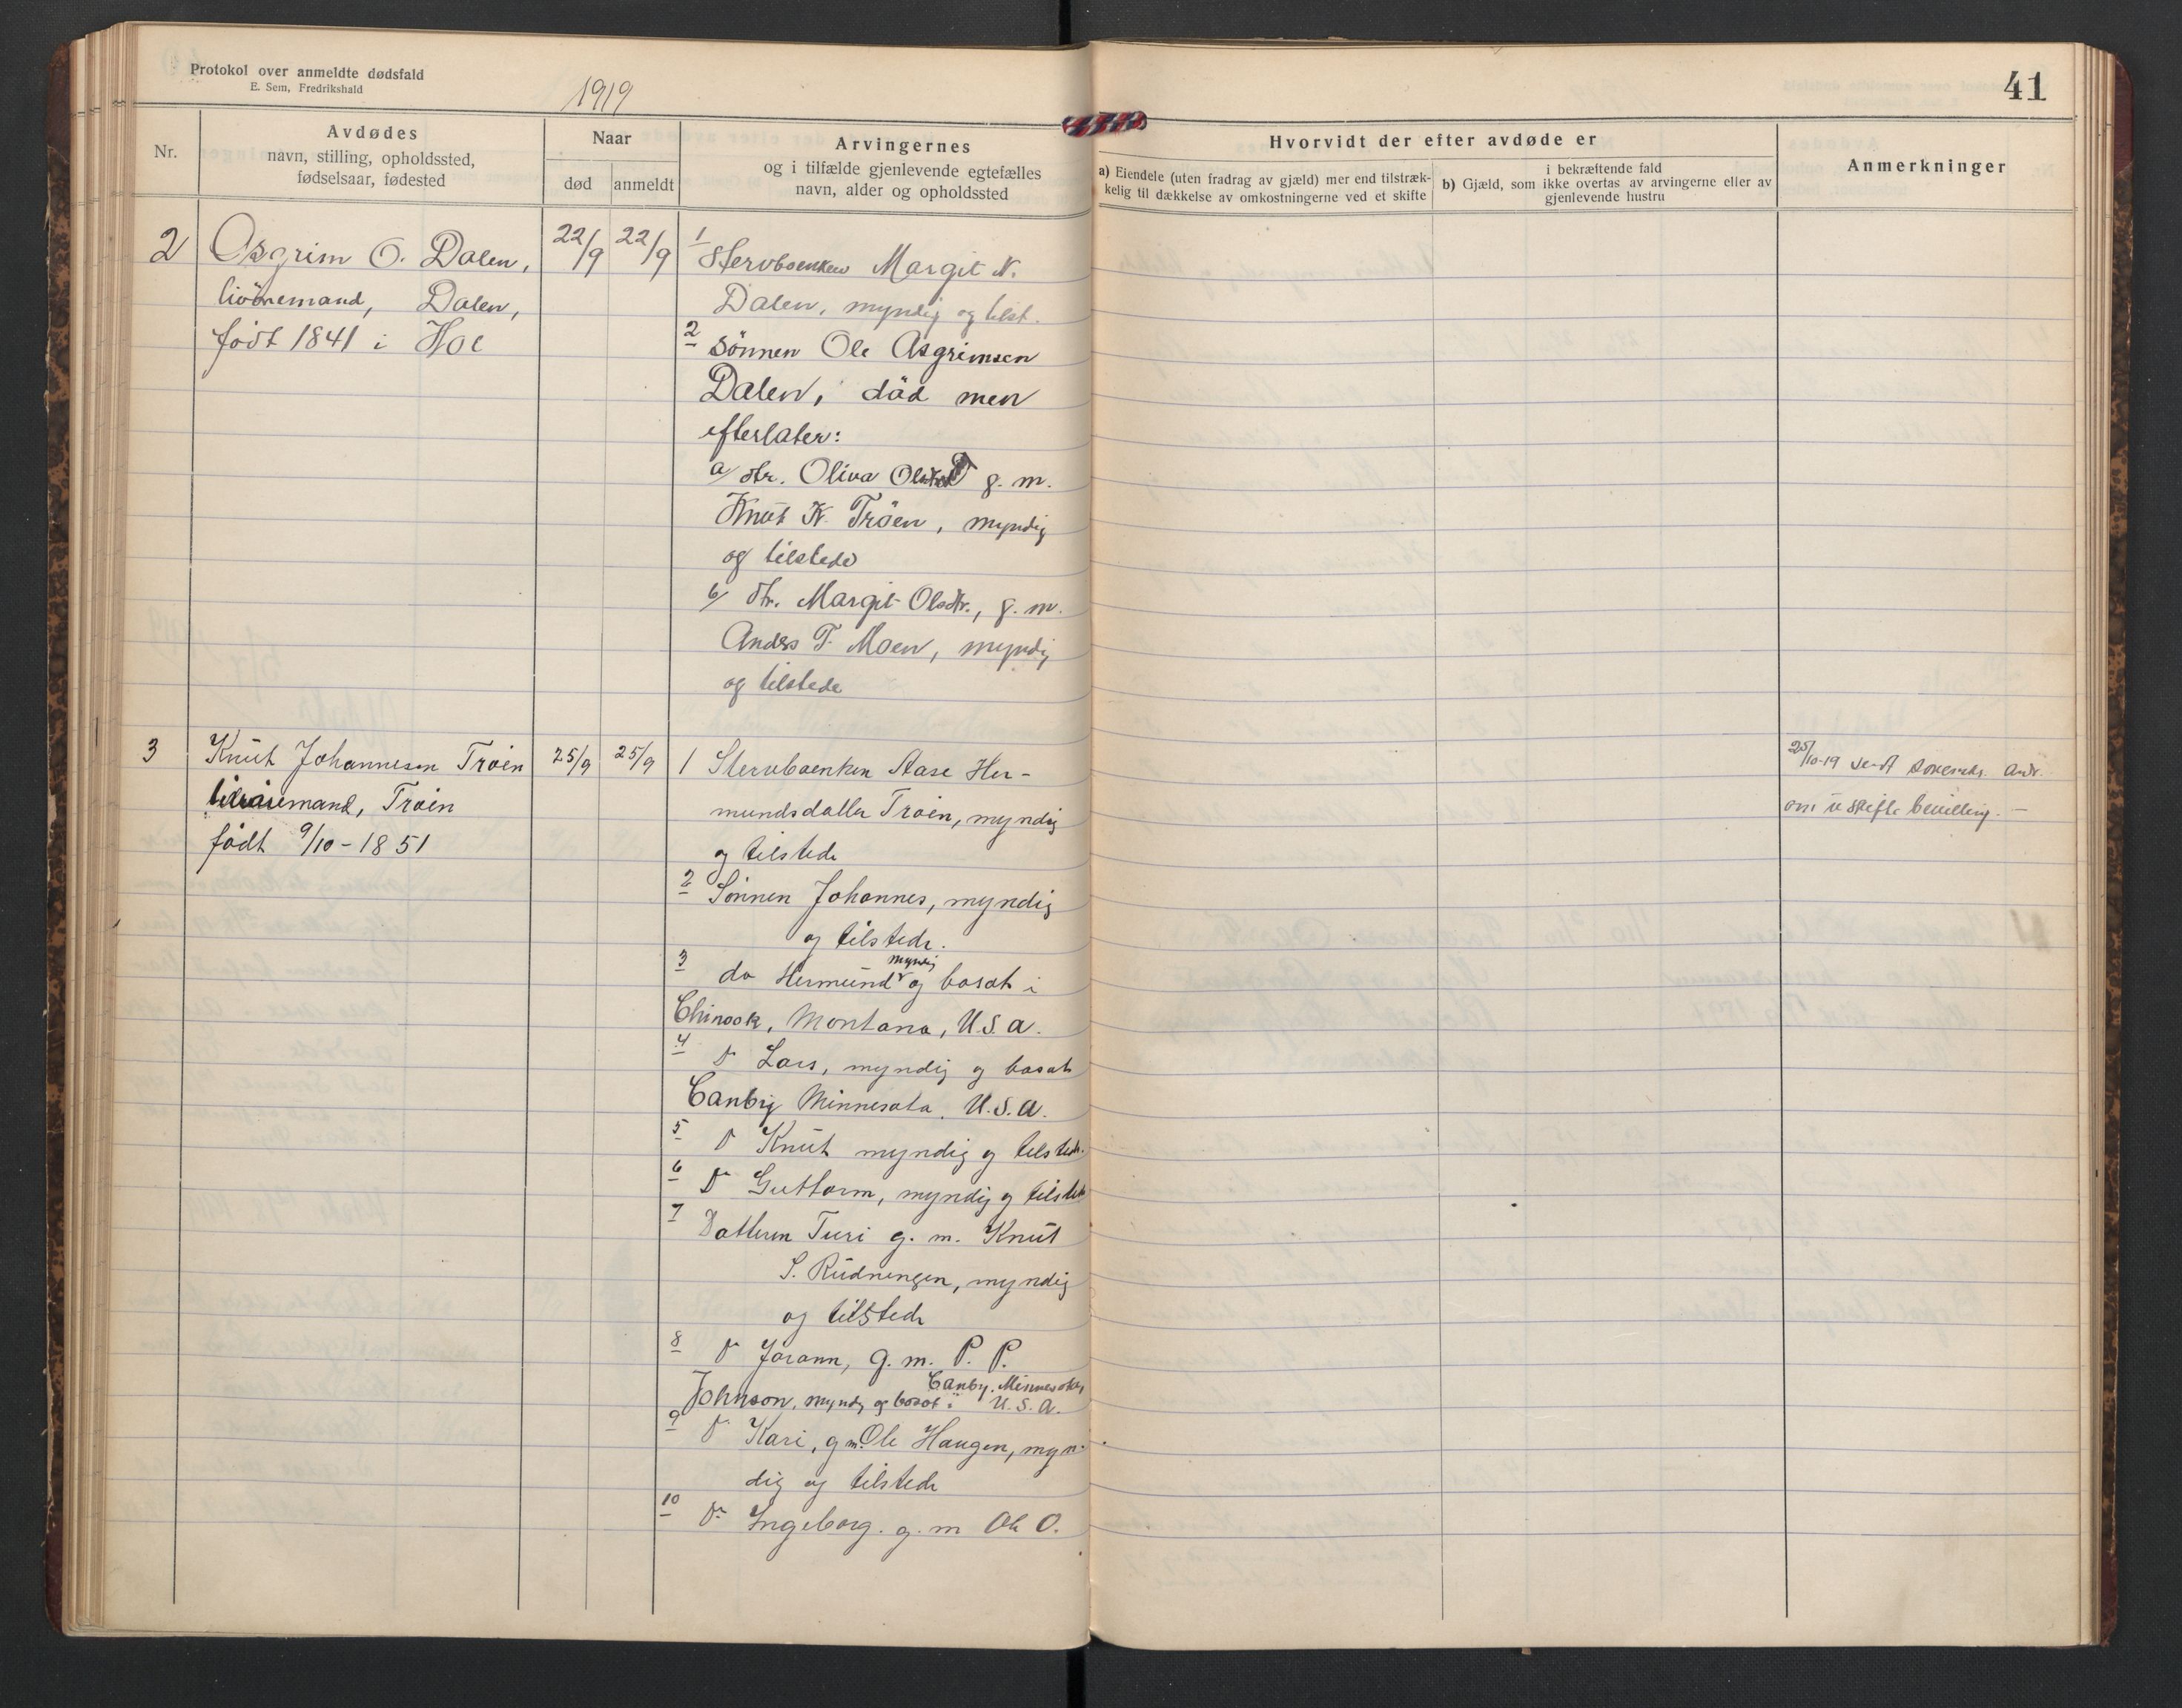 Protokol over anmeldte dødsfald
E. Sem, Fredrikshald
1919
41
Nr.
Avdødes
navn, stilling, opholdssted,
fødselsaar, fødested
Naar
død
anmeldt
Arvingernes
og i tilfælde gjenlevende egtefælles
navn, alder og opholdssted
Hvorvidt der efter avdøde er
a) Eiendele (uten fradrag av gjæld) mer end tilstræk-
kelig til dækkelse av omkostningerne ved et skifte
i bekræftende fald
b) Gjæld, som ikke overtas av arvingerne eller av
gjenlevende hustru
Anmerkninger
2
Asgrim O. Dalen,
Dalen,
födt 1841 i Hol
22/9
22/9
1
Stervboenken Margit N.
Dalen, myndig og tilst.
2
sönnen Ole Asgrimsen
Dalen, död men
efterlater:
a/ dtr. Oliva g. m.
Knut K. Tröen, myndig
og tilstede
b/ dtr. Margit Olsdtr., g. m.
Anders T. Moen, myndig
og tilstede
3
Knut Johannesen Troen
Troen
født 9/10-1851
25/9
25/9
1 Stervboenken Aase Her-
mundsdatter Troen, myndig
og tilstede
2 Sønnen Johannes, myndig
og tilstede.
3 do Hermund myndig og bosat i
Chinook, Montana, U.S.A.
4 Lars, myndig og bosat
Canby Minnesota. U.S.A.
5 Knut myndig og tilstede.
6 Guttorm, myndig og tilstede
7 Datteren Turi g. m. Knut
S. Rudningen, myndig
og tilstede
8 Jorann, g. m. P. P.
Johnson, myndig og bosat i Canby. Minnesota, U.S.A.
9 Kari, g m. Ole Haugen, myn-
dig og tilstede
10 Ingeborg. g. m Ole O.
25/10-19 sendt
om uskifte bevilling. —